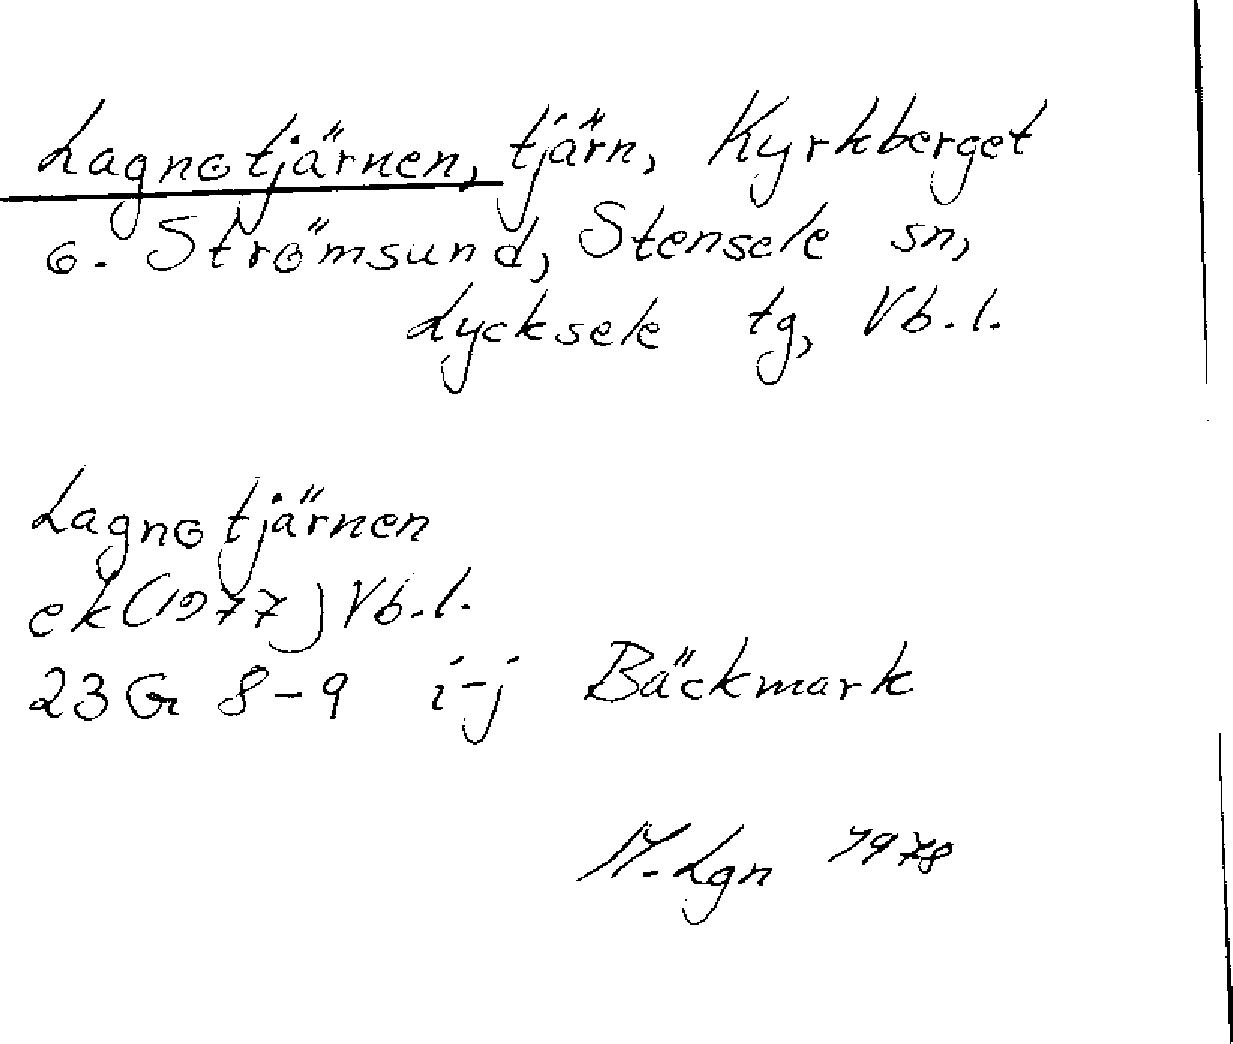 Lagnotjärnen, tjärn, Kyrkberget
o. Strömsund, Stensele sn,
Lycksele tg, Vb.l.
Lagnotjärnen
ek(1977) Vb.l.
23G 8-9 i-j Bäckmark
M.Lgn 1978